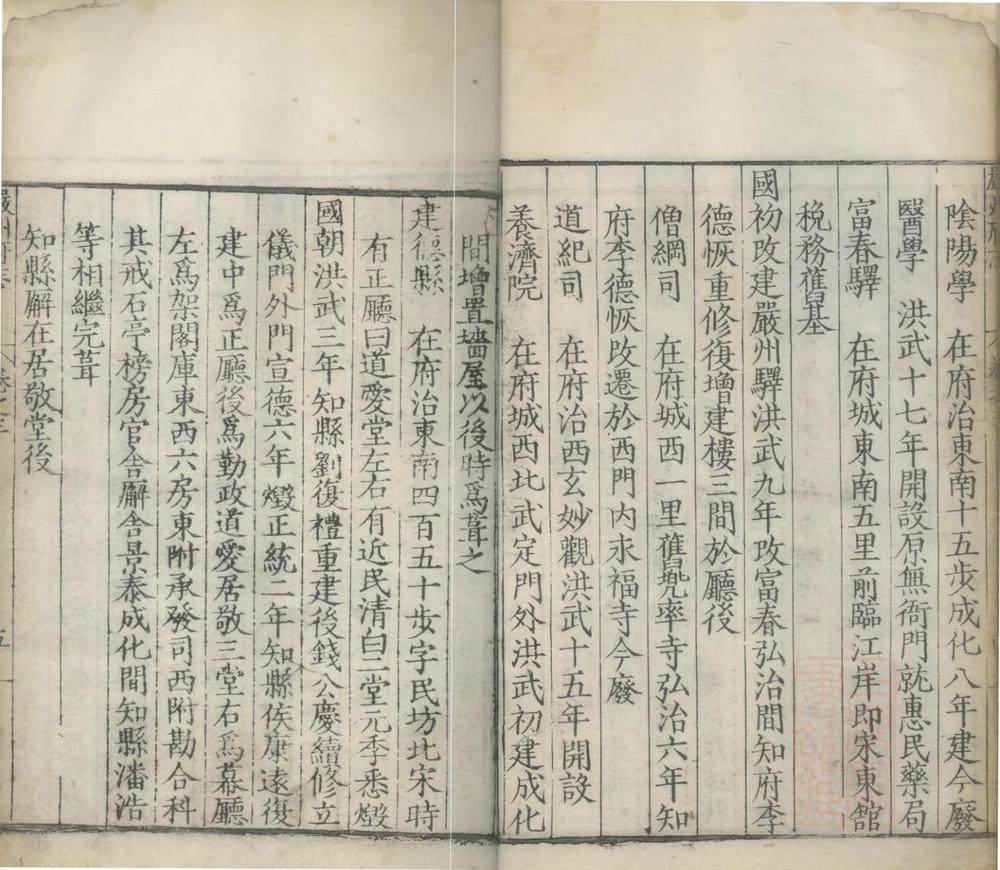 陰陽學　在府治東南十五步成化八年建今廢
醫學　洪武十七年開設原無衙門就惠民藥局
富春驛　在府城東南五里前臨江岸即宋東舘
稅務舊基
國初改建嚴州驛洪武九年改富春弘治間知府李
德恢重修復增建樓三間於廳後
僧綱司　在府城西一里舊兜率寺弘治六年知
府李德恢改遷於西門內永福寺今廢
道紀司　在府治西玄妙觀洪武十五年開設
養濟院　在府城西北武定門外洪武初建成化
間增置墻屋以後時爲葺之
建德縣　在府治東南四百五十步字民坊北宋時
有正廳曰道愛堂左右有近民清白二堂元季悉燬
國朝洪武三年知縣劉復禮重建後錢公慶續修立
儀門外門宣德六年燬正統二年知縣侯康遠復
建中爲正廳後爲勤政道愛居敬三堂右爲幕廳
左爲架閣庫東西六房東附承發司西附勘合科
其戒石亭榜房官舍廨舍景泰成化間知縣潘浩
等相繼完葺
知縣廨在居敬堂後